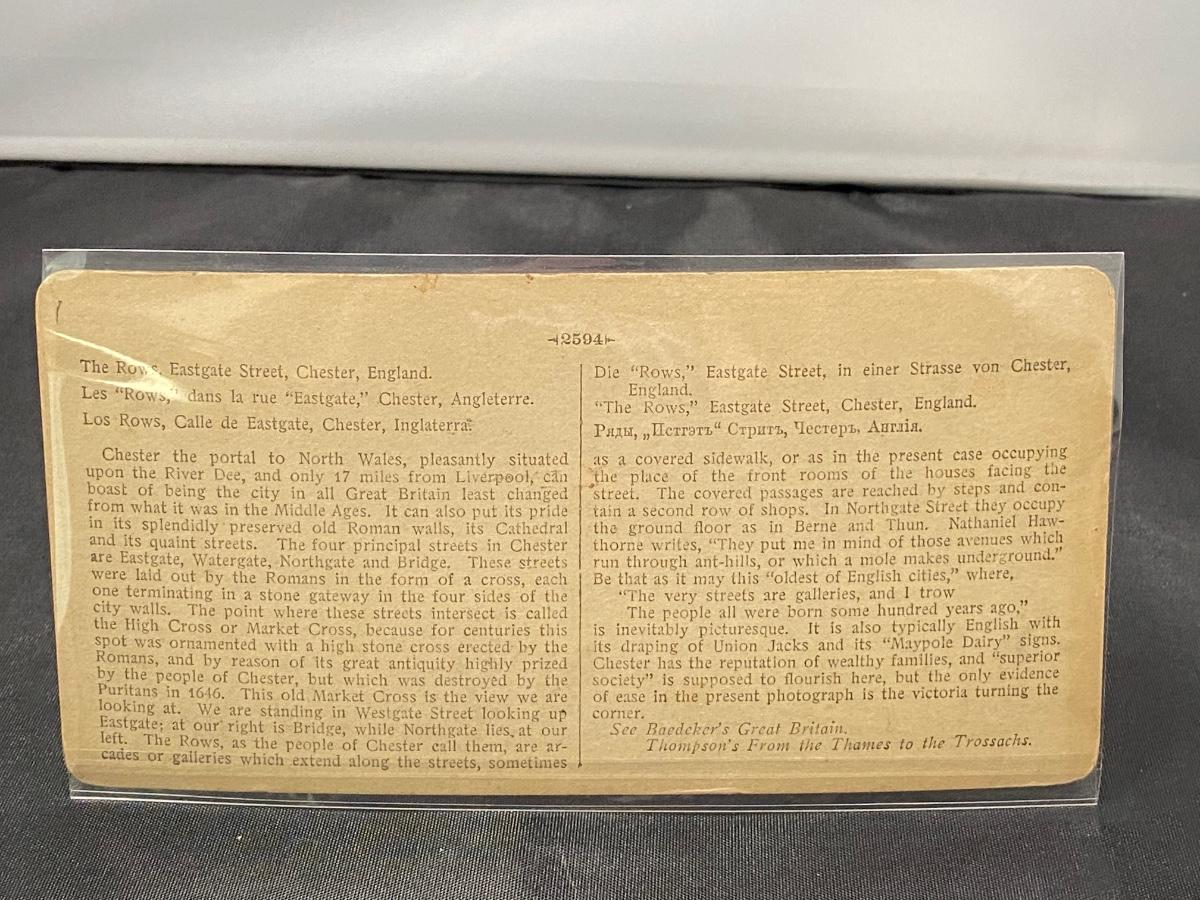 ⊰2594⊱
The Rows, Eastgate Street, Chester, England.
Les “Rows,” dans la rue “Eastgate,” Chester, Angleterre.
Los Rows, Calle de Eastgate, Chester, Inglaterra.
Chester the portal to North Wales, pleasantly situated
upon the River Dee, and only 17 miles from Liverpool, can
boast of being the city in all Great Britain least changed
from what it was in the Middle Ages. It can also put its pride
in its splendidly preserved old Roman walls, its Cathedral
and its quaint streets. The four principal streets in Chester
are Eastgate, Watergate, Northgate and Bridge. These streets
were laid out by the Romans in the form of a cross, each
one terminating in a stone gateway in the four sides of the
city walls. The point where these streets intersect is called
the High Cross or Market Cross, because for centuries this
spot was ornamented with a high stone cross erected by the
Romans, and by reason of its great antiquity highly prized
by the people of Chester, but which was destroyed by the
Puritans in 1646. This old Market Cross is the view we are
looking at. We are standing in Westgate Street looking up
Eastgate; at our right is Bridge, while Northgate lies at our
left. The Rows, as the people of Chester call them, are ar-
cades or galleries which extend along the streets, sometimes
Die “Rows,” Eastgate Street, in einer Strasse von Chester,
England.
“The Rows,” Eastgate Street, Chester, England.
Ряды, „Пстгэтъ“ Стритъ, Честеръ, Англія.
as a covered sidewalk, or as in the present case occupying
the place of the front rooms of the houses facing the
street. The covered passages are reached by steps and con-
tain a second row of shops. In Northgate Street they occupy
the ground floor as in Berne and Thun. Nathaniel Haw-
thorne writes, “They put me in mind of those avenues which
run through ant-hills, or which a mole makes underground.”
Be that as it may this “oldest of English cities,” where,
“The very streets are galleries, and I trow
The people all were born some hundred years ago,”
is inevitably picturesque. It is also typically English with
its draping of Union Jacks and its “Maypole Dairy” signs.
Chester has the reputation of wealthy families, and “superior
society” is supposed to flourish here, but the only evidence
of ease in the present photograph is the victoria turning the
corner.
See Baedeker's Great Britain.
Thompson's From the Thames to the Trossachs.